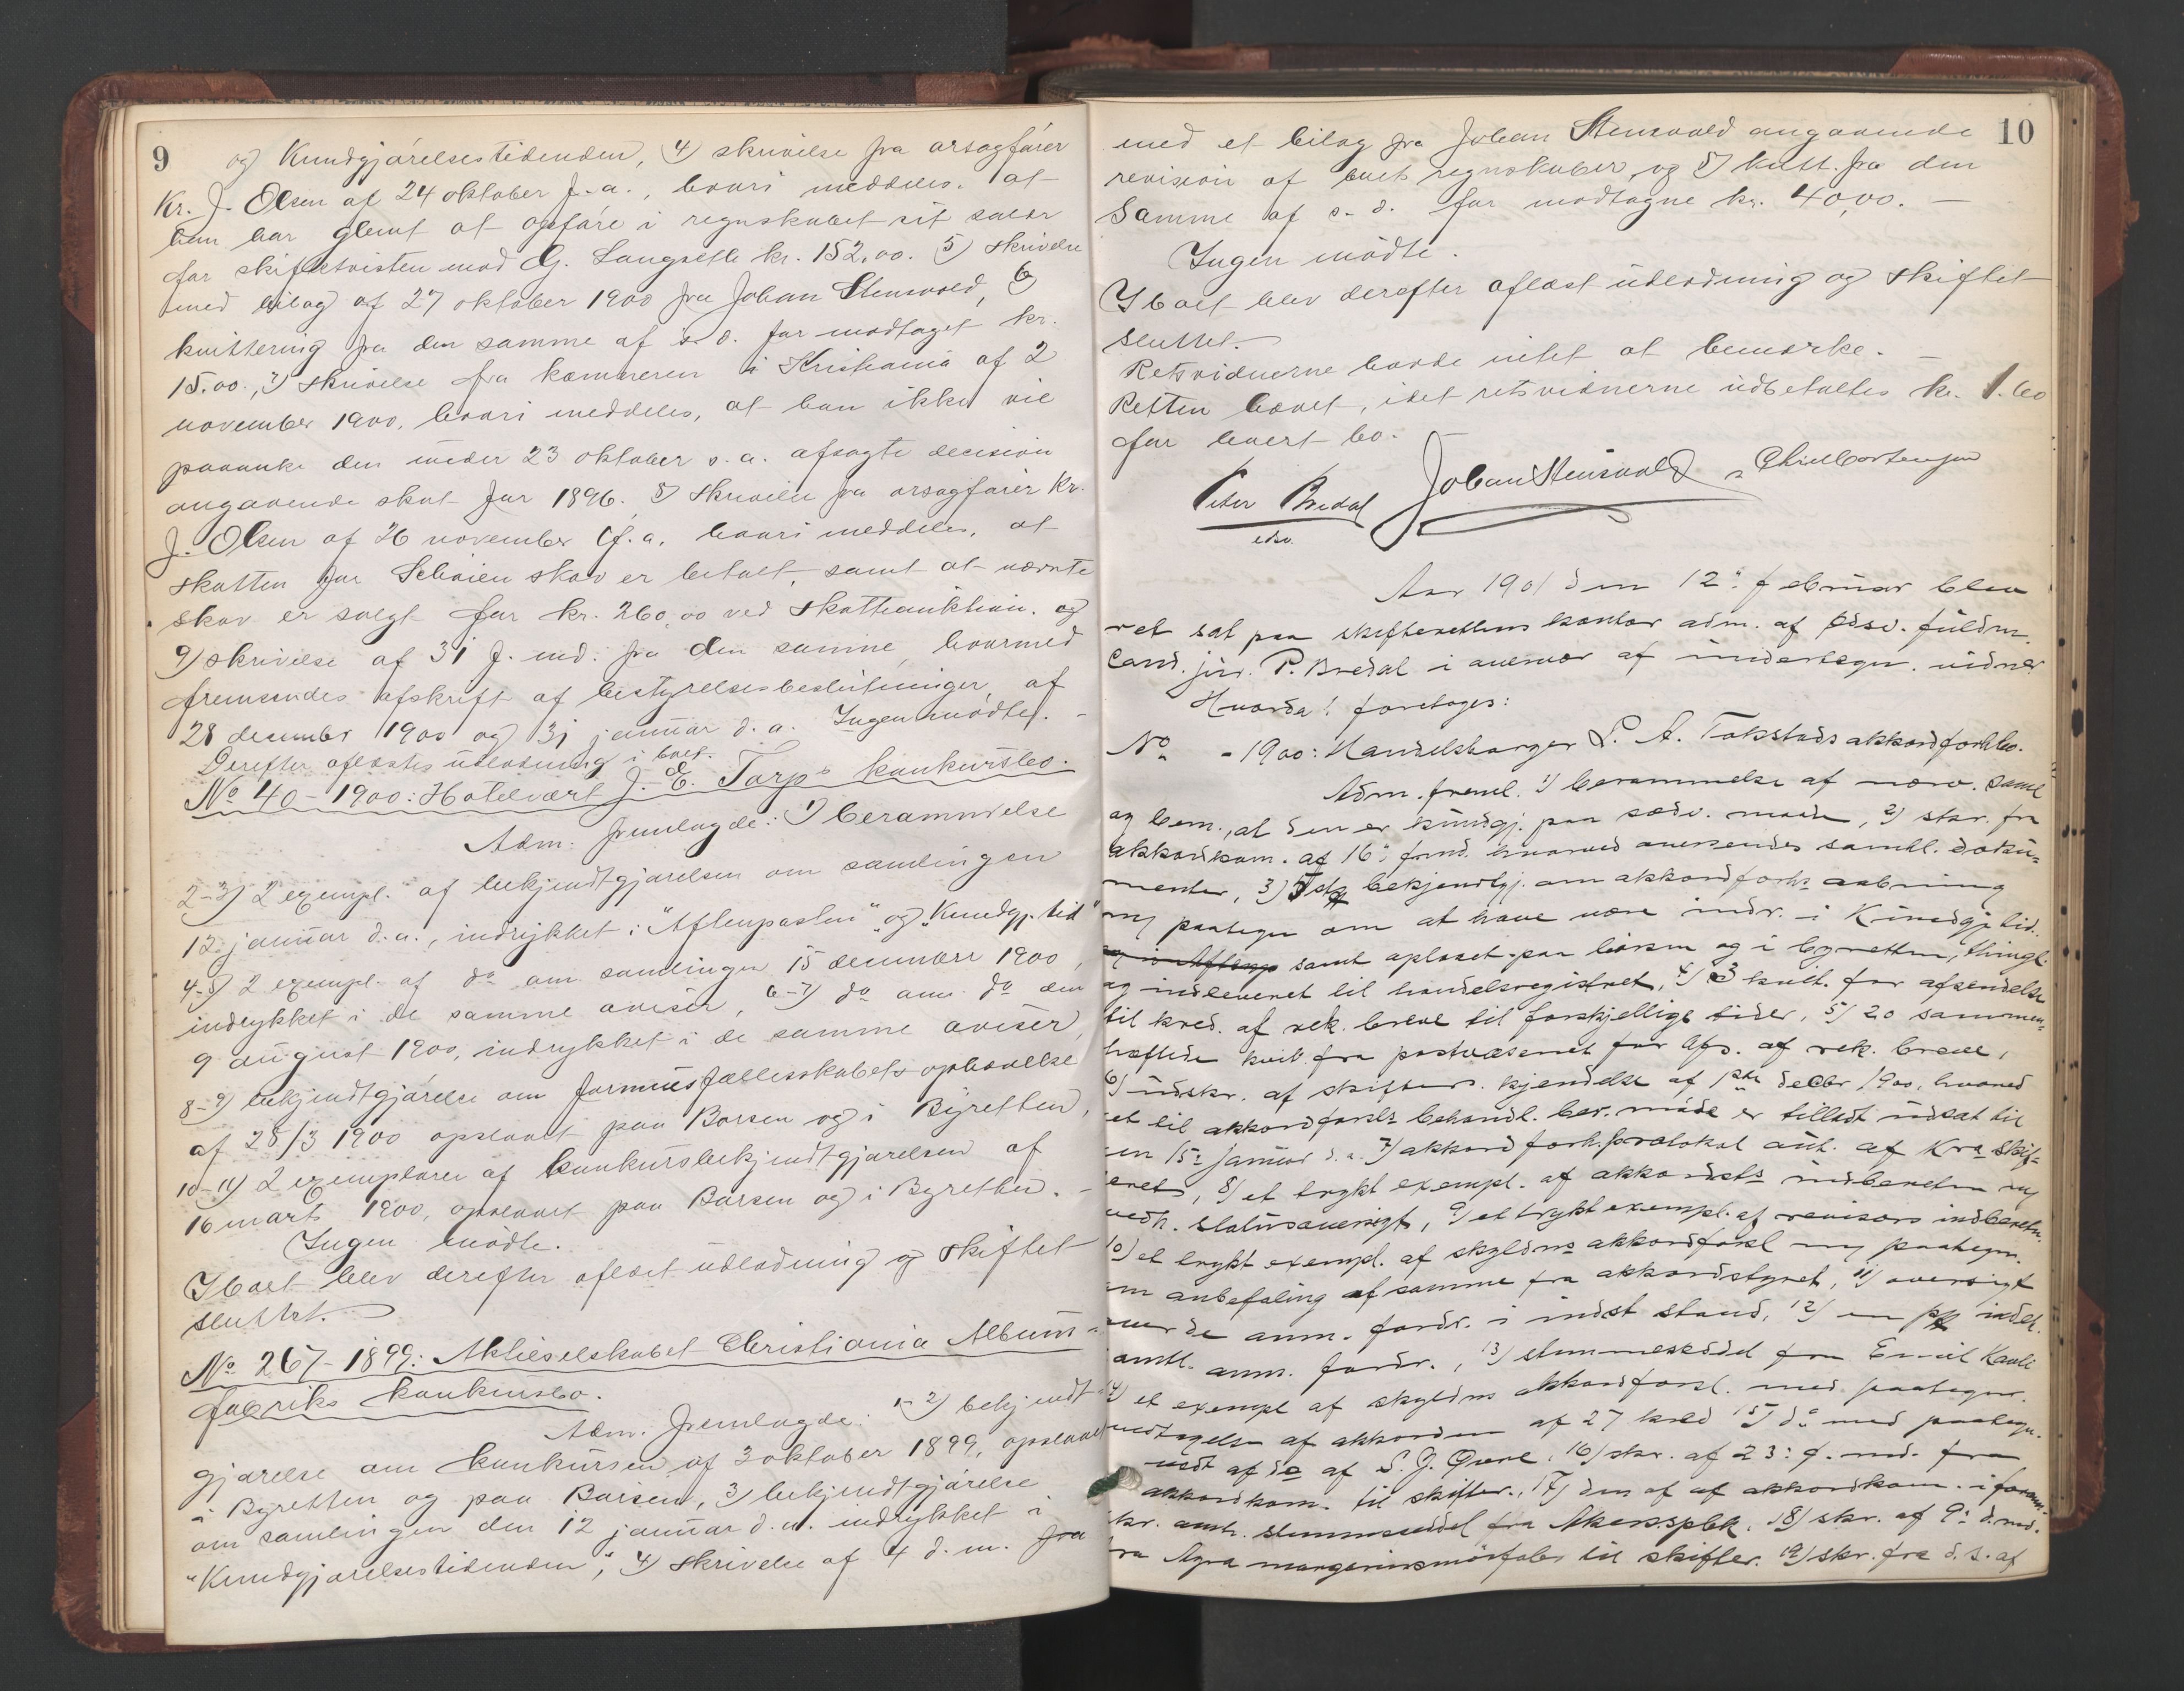 9
og Kundgjørelsestidenden, 4) skrivelse fra orsagfører
Kr. J. Olsen af 24 oktober f. a., hvori meddeles. at
han har glemt at opføre i regnskabet sit salær
for skiftetvisten mod G. Langseth kr. 152.00. 5) skrivelse
med bilag af 27 oktober 1900 fra Johan Stenswold, 6)
kvittering fra den samme af s. d. for modtaget kr.
15.00., 7) skrivelse fra kæmneren i Kristiania af 2
november 1900, hvori meddeles, at han ikke vil
paaanke den under 23 oktober s. a. afsagte decision
angaaende skat for 1896. 8) skrivelse fra orsagfører Kr.
J. Olsen af 26 november f. a. hvori meddeles, at
skatten for skov er betalt, samt at nævnte
skov er solgt for kr. 260,00 ved skatteauktion. og
9) skrivelse af 31 f. md. fra den samme, hvormed
fremsendes afskrift af bestyrelsesbeslutninger, af
28 december 1900 og 31 januar d. a. Ingen mødte. -
Derefter oplæstes udlodning i boet.
No 40 - 1900: Hotelvært J. E. Torps konkursbo.
Adm. fremlagde: 1) berammelse
2-3) 2 exempl. af bekjendtgjørelsen om samlingen
12 januar d. a., indrykket i "Aftenposten" og "Kundgj. tid"
4-5) 2 exempl. af do om samlingen 15 december 1900,
indrykket i de samme aviser, 6-7) do om do den
9 august 1900, indrykket i de samme aviser,
8-9) bekjendtgjørelse om formuesfællesskabets ophævelse
af 28/3 1900 opslaaet paa Børsen og i Byretten,
10-11) 2 exemplarer af konkursbekjendtgjørelsen af
16 marts 1900, opslaaet paa Børsen og i Byretten. -
Ingen mødte.
I boet blev derefter oplæst udlodning og skiftet
sluttet.
No 267 - 1899: Aktieselskabet Christiania Album-
fabriks konkursbo.
Adm. fremlagde: 1-2) bekjendt-
gjørelse om konkursen af 3 oktober 1899, opslaaet
i Byretten og paa Børsen, 3) bekjendtgjørelse
om samlingen den 12 januar d. a. indrykket i
"Kundgjørelsestidenden", 4) skrivelse af 4 d. m. fra
10
med et bilag fra Johan Stenswold angaaende
revision af boets regnskaber, og 5) kvitt. fra den
samme af s. d. for modtagne kr. 40,00. -
Ingen mødte.
I boet blev derefter oplæst udlodning og skiftet
sluttet. -
Retsvidnerne havde intet at bemærke. -
Retten hævet, idet retsvidnerne udbetaltes kr. 1.60
for hvert bo. -
Peter Bredal
edsv.
Johan Stenswold
Aar 1901 den 12te februar blev
ret sat paa skifterettens kontor adm. af edsv. fuldm.
Cand. jur. P. Bredal i overvær af undertegn. vidner
Hvorda! foretoges:
No - 1900: Handelsborger L. A. Tokstads akkordforh.bo.
Adm. freml. 1) berammelse af nærv. saml.
og bem., at den er kundgj. paa sædv. maade, 2) skr. fra
akkordkom. af 16. f.md. hvorved oversendes samtl. doku-
menter, 3) bekjendtgj. om akkordforhs aabning
m/ paategn om at have være indr. i Kundgj. tid.
samt oplæst paa børsen og i byretten, thingl.
og indleveret til handelsregistret, 4) 3 kvitt. for afsendelse
til kred. af rek. breve til forskjellige tider, 5) 20 sammen-
hæftede kvitt. fra postvæsenet for afs. af rek. breve,
6) udskr. af skifter. kjendelse af 1ste decbr 1900, hvorved
et til akkordforsls behandl. ber. møde er tilladt udsat til
en 15. januar d. a. 7) akkordforh.protokol aut. af Kra skif-
teret, 8) et trykt exempl. af akkordsts indberetn m/
vedh. statusoversigt, 9) et trykt exempl. af revisors indberetn.
10) et trykt exempl. af skyldns akkordforsl m/ paategn.
om anbefaling af samme fra akkordstyret, 11) oversigt
over de anm. fordr. i indst stand, 12) en indeh.
samtl. anm. fordr., 13) stemmeseddel fra Emil
14) et exempl af skyldns akkordforsl. med paategn.
modtagelse af akkorden af 27 kred 15) do med paategn.
vedt af do af S. J. 16) skr. af 23. f. md. fra
akkordkom. til skifter., 17) den af af akkordkom. i foran.
skr. omh. stemmeseddel fra Akers spbk. 18) skr. af 9. d. md.
fra Agra margarinsmørfabr til skifter. 19) skr. fra d. s. af